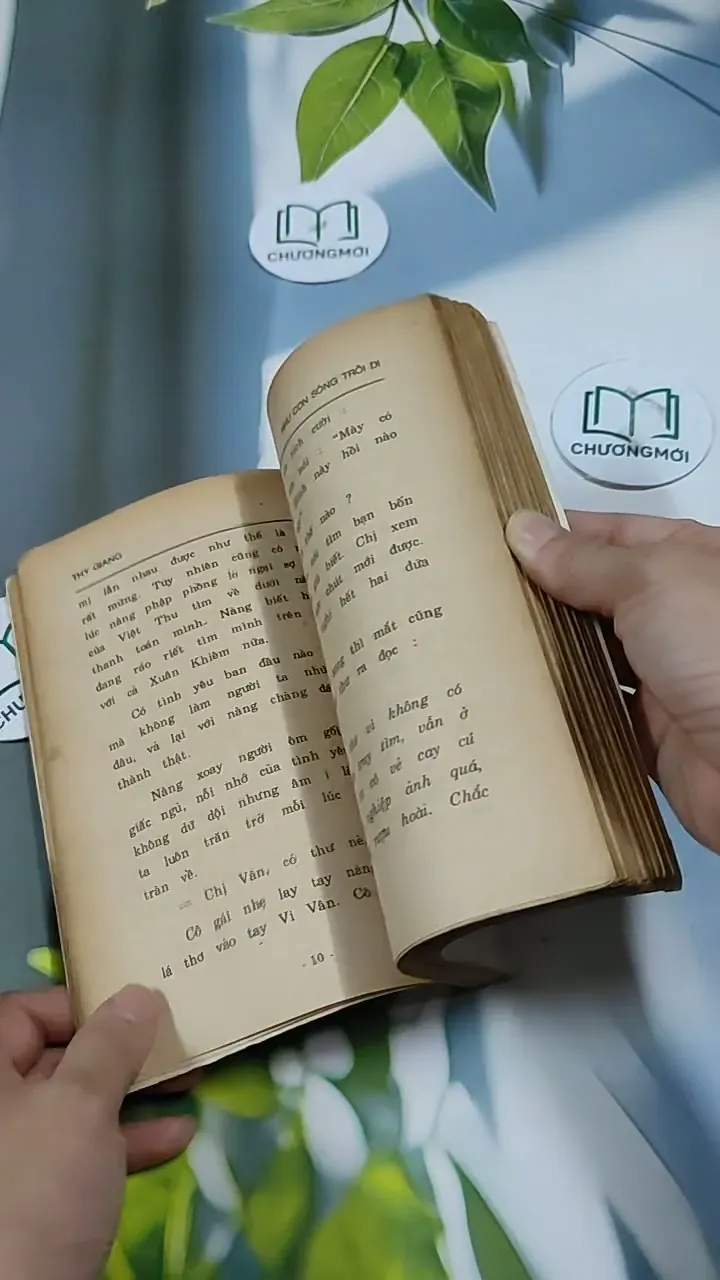 CHƯƠNGMỚI
CHƯƠNGMỚI
THY GIANG
mị lẫn nhau được như thế là
rất mừng. Tuy nhiên cũng có
lúc nàng phập phồng lo ngại sợ
của Việt Thu tìm về dưới
thanh toán mình. Nàng biết
đang ráo riết tìm mình trên
với cả Xuân Khiêm nữa.
Có tình yêu ban đầu nào
mà không làm người ta
đâu, và lại với nàng chàng
thành thật.
Nàng xoay người ôm gối
giấc ngủ, nỗi nhớ của tình
không dữ dội nhưng âm ỉ
ta luôn trăn trở mỗi lúc
tràn về.
— Chị Vân, có thư nè,
Cô gái nhẹ lay tay
lá thơ vào tay Vi Vân. Cô
- 10 -
NHƯ CON SÔNG TRÔI ĐI
cười :
: "Mày có
này hồi nào
nào ?
tìm bạn bốn
biết. Chị xem
chút mới được.
hết hai đứa
thì mắt cũng
thư ra đọc :
vì không có
tìm, vẫn ở
có vẻ cay cú
nghiệp ảnh quá,
hoài. Chắc